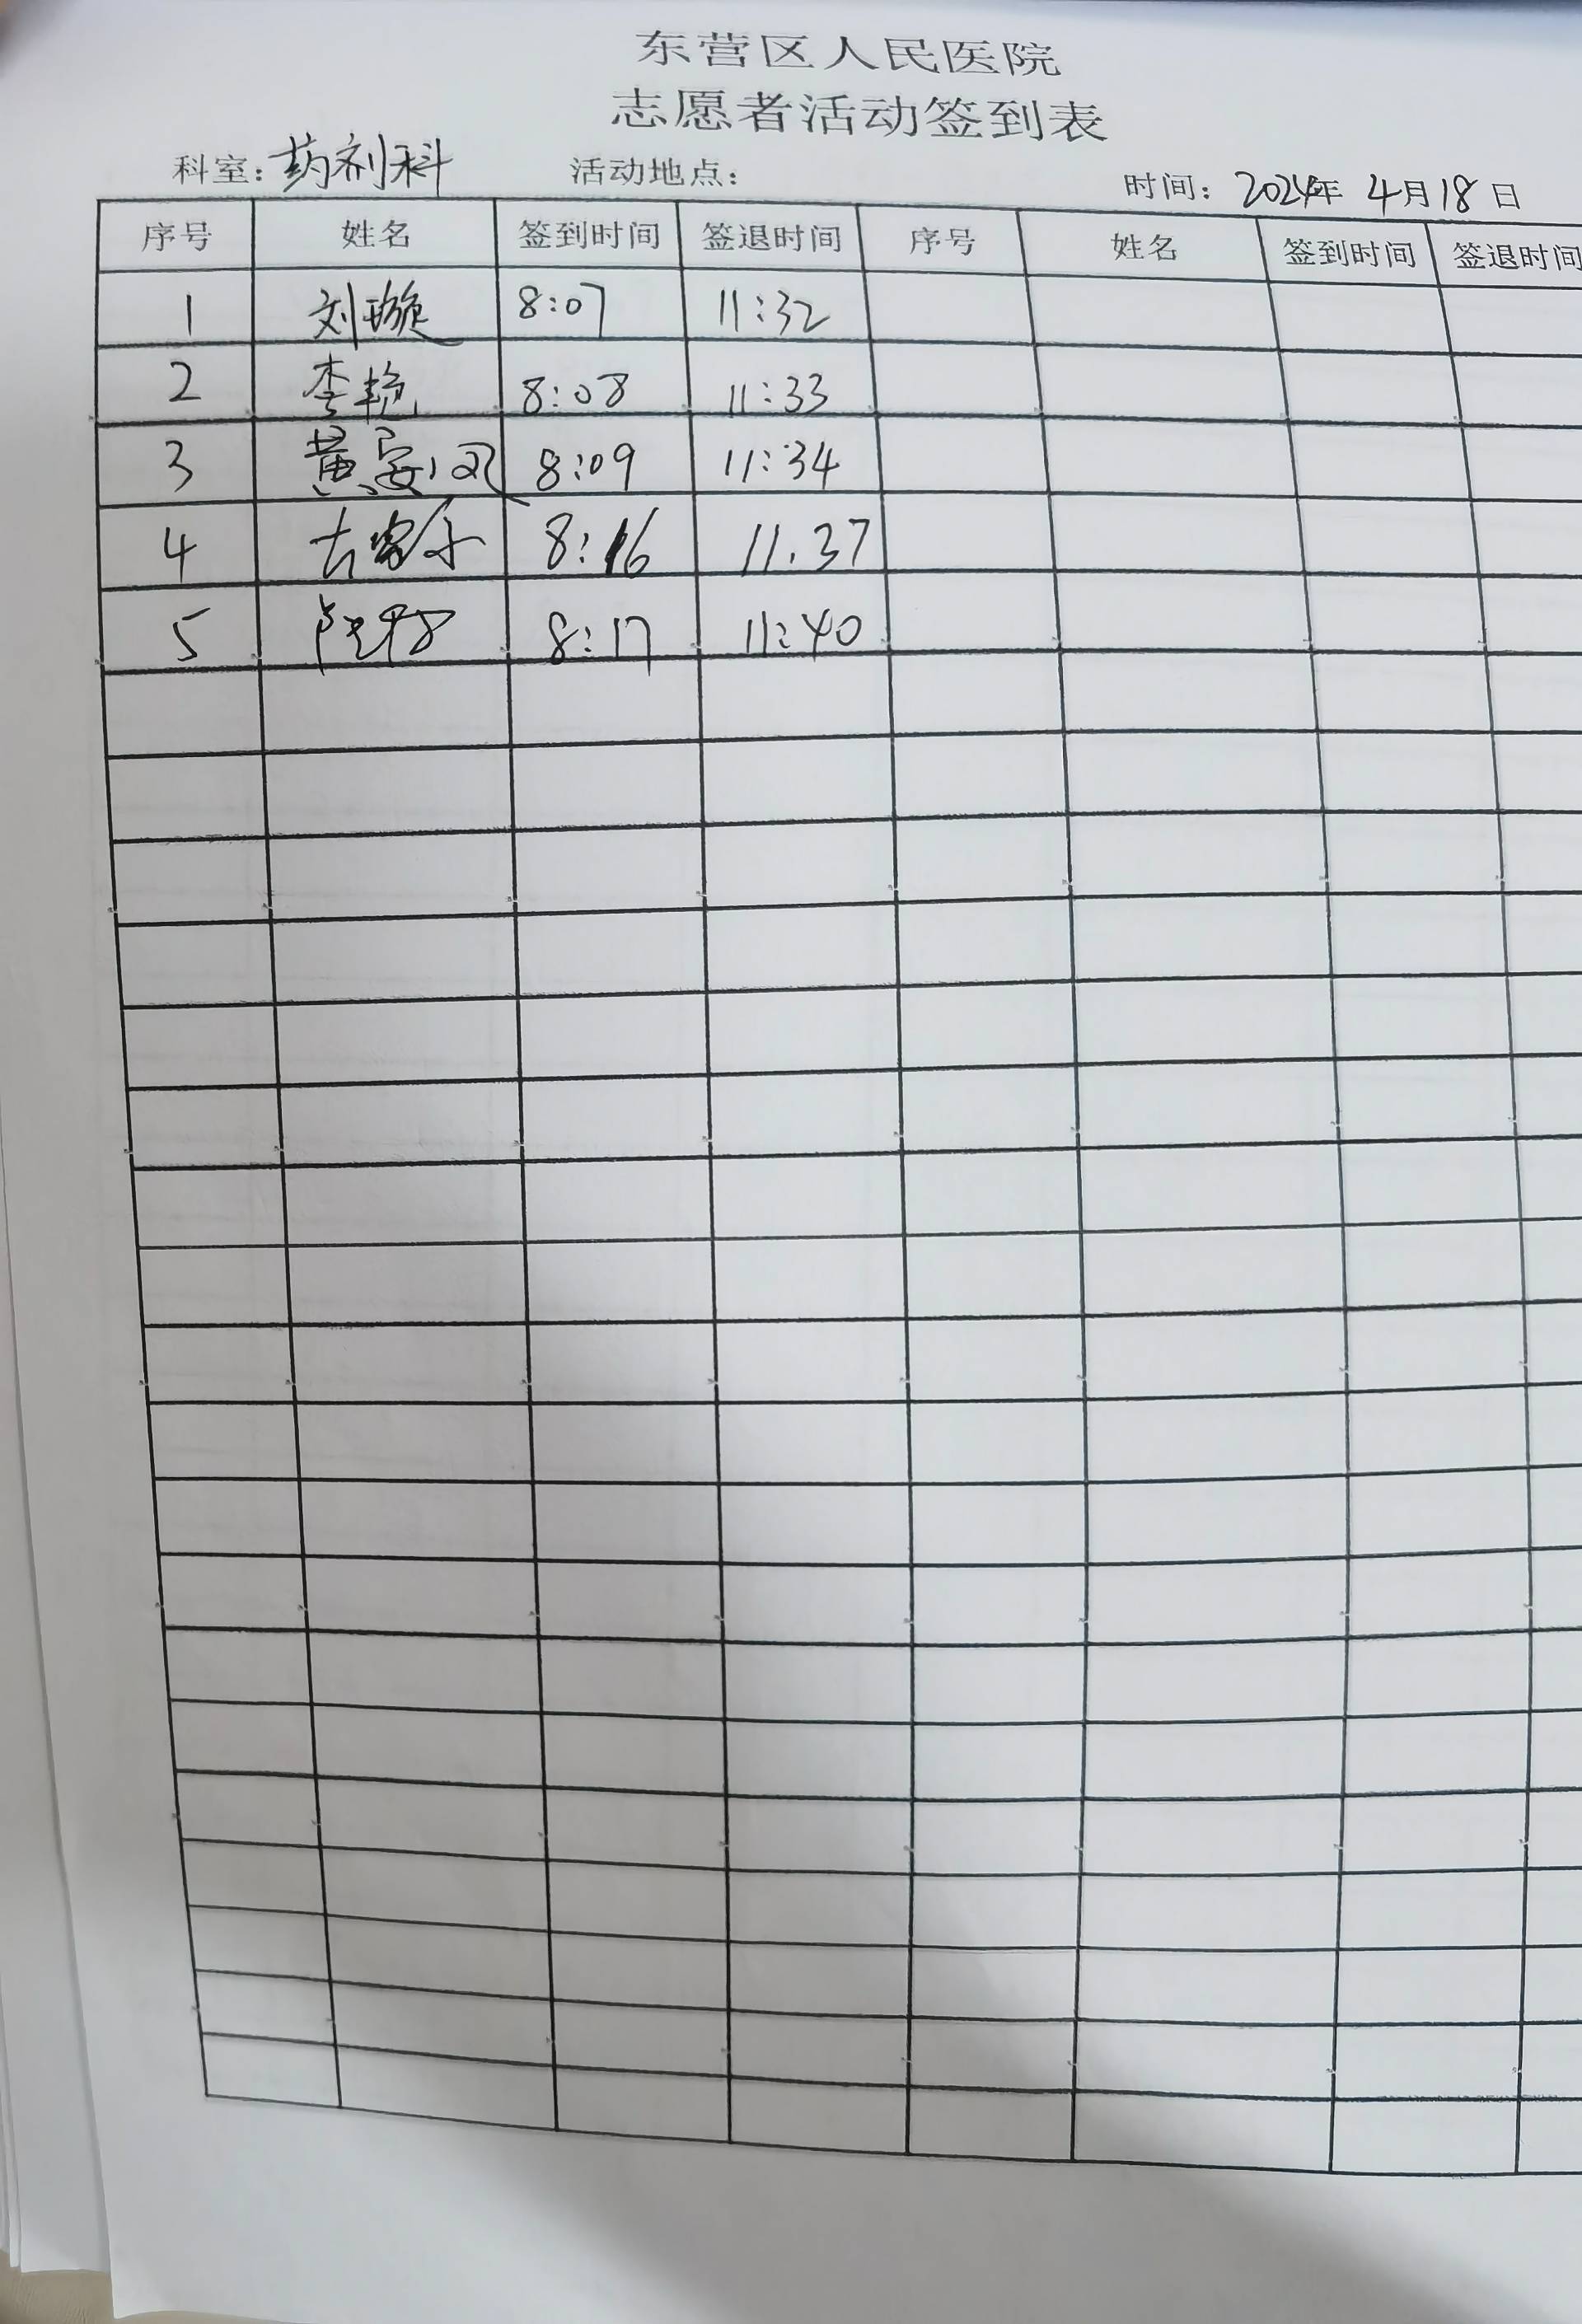 东营区人民医院
志愿者活动签到表
科室：药剂科 活动地点： 时间：2024年 4月18日
序号 姓名 签到时间 签退时间 序号 姓名 签到时间 签退时间
1 刘璇 8:07 11:32
2 李艳 8:08 11:33
3 黄 8:09 11:34
4 8:16 11.37
5 8:17 11:40